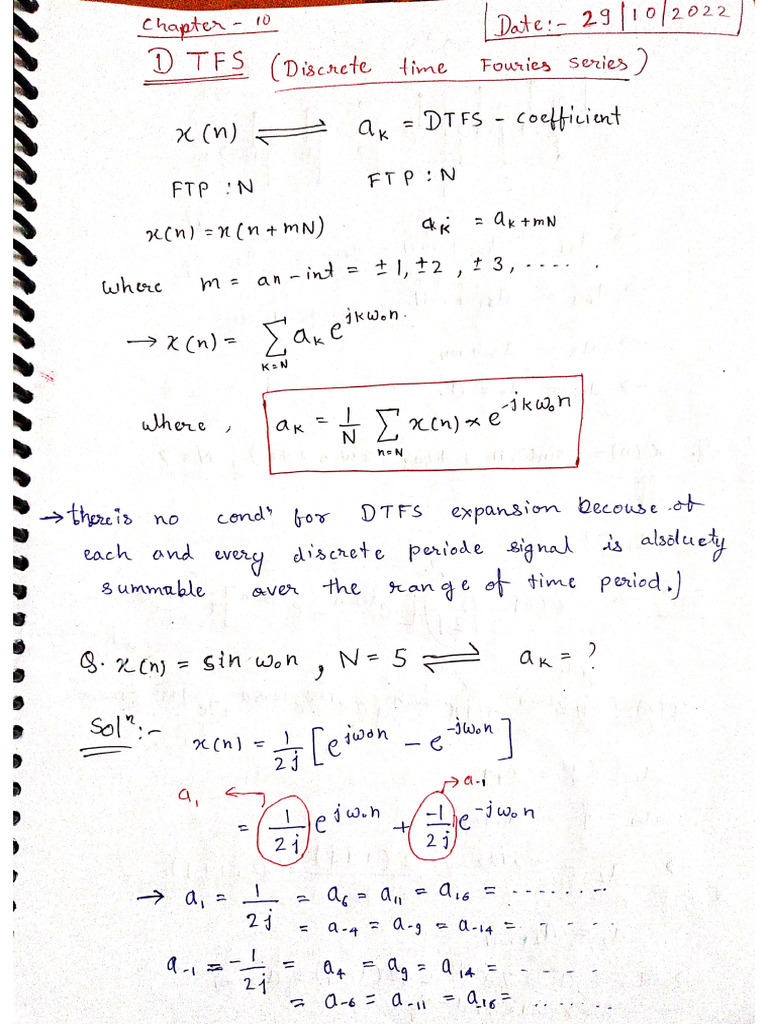 Chapter - 10
Date:- 29/10/2022
DTFS (Discrete time Fouries series)
x(n) ⇌ aₖ = DTFS - coefficient
FTP : N FTP : N
x(n) = x(n + mN) aₖ = aₖ₊ₘN
where m = an - int = ±1, ±2, ±3, .....
→ x(n) = Σ_{K=N} aₖ e^{jkω₀n}.
where, aₖ = 1/N Σ_{n=N} x(n) * e^{-jkω₀n}
→ there is no condⁿ for DTFS expansion becouse of
each and every discrete periode signal is alsolucty
summable over the range of time period.)
Q. x(n) = sin ω₀n, N = 5 ⇌ aₖ = ?
Solⁿ:- x(n) = 1/2j [e^{jω₀n} - e^{-jω₀n}]
a₁ ← → a₋₁
= 1/2j e^{jω₀n} + -1/2j e^{-jω₀n}
→ a₁ = 1/2j = a₆ = a₁₁ = a₁₆ = .......
= a₋₄ = a₋₉ = a₋₁₄ = - - - -
a₋₁ = -1/2j = a₄ = a₉ = a₁₄ = - - - - -
= a₋₆ = a₋₁₁ = a₁₆ = .......